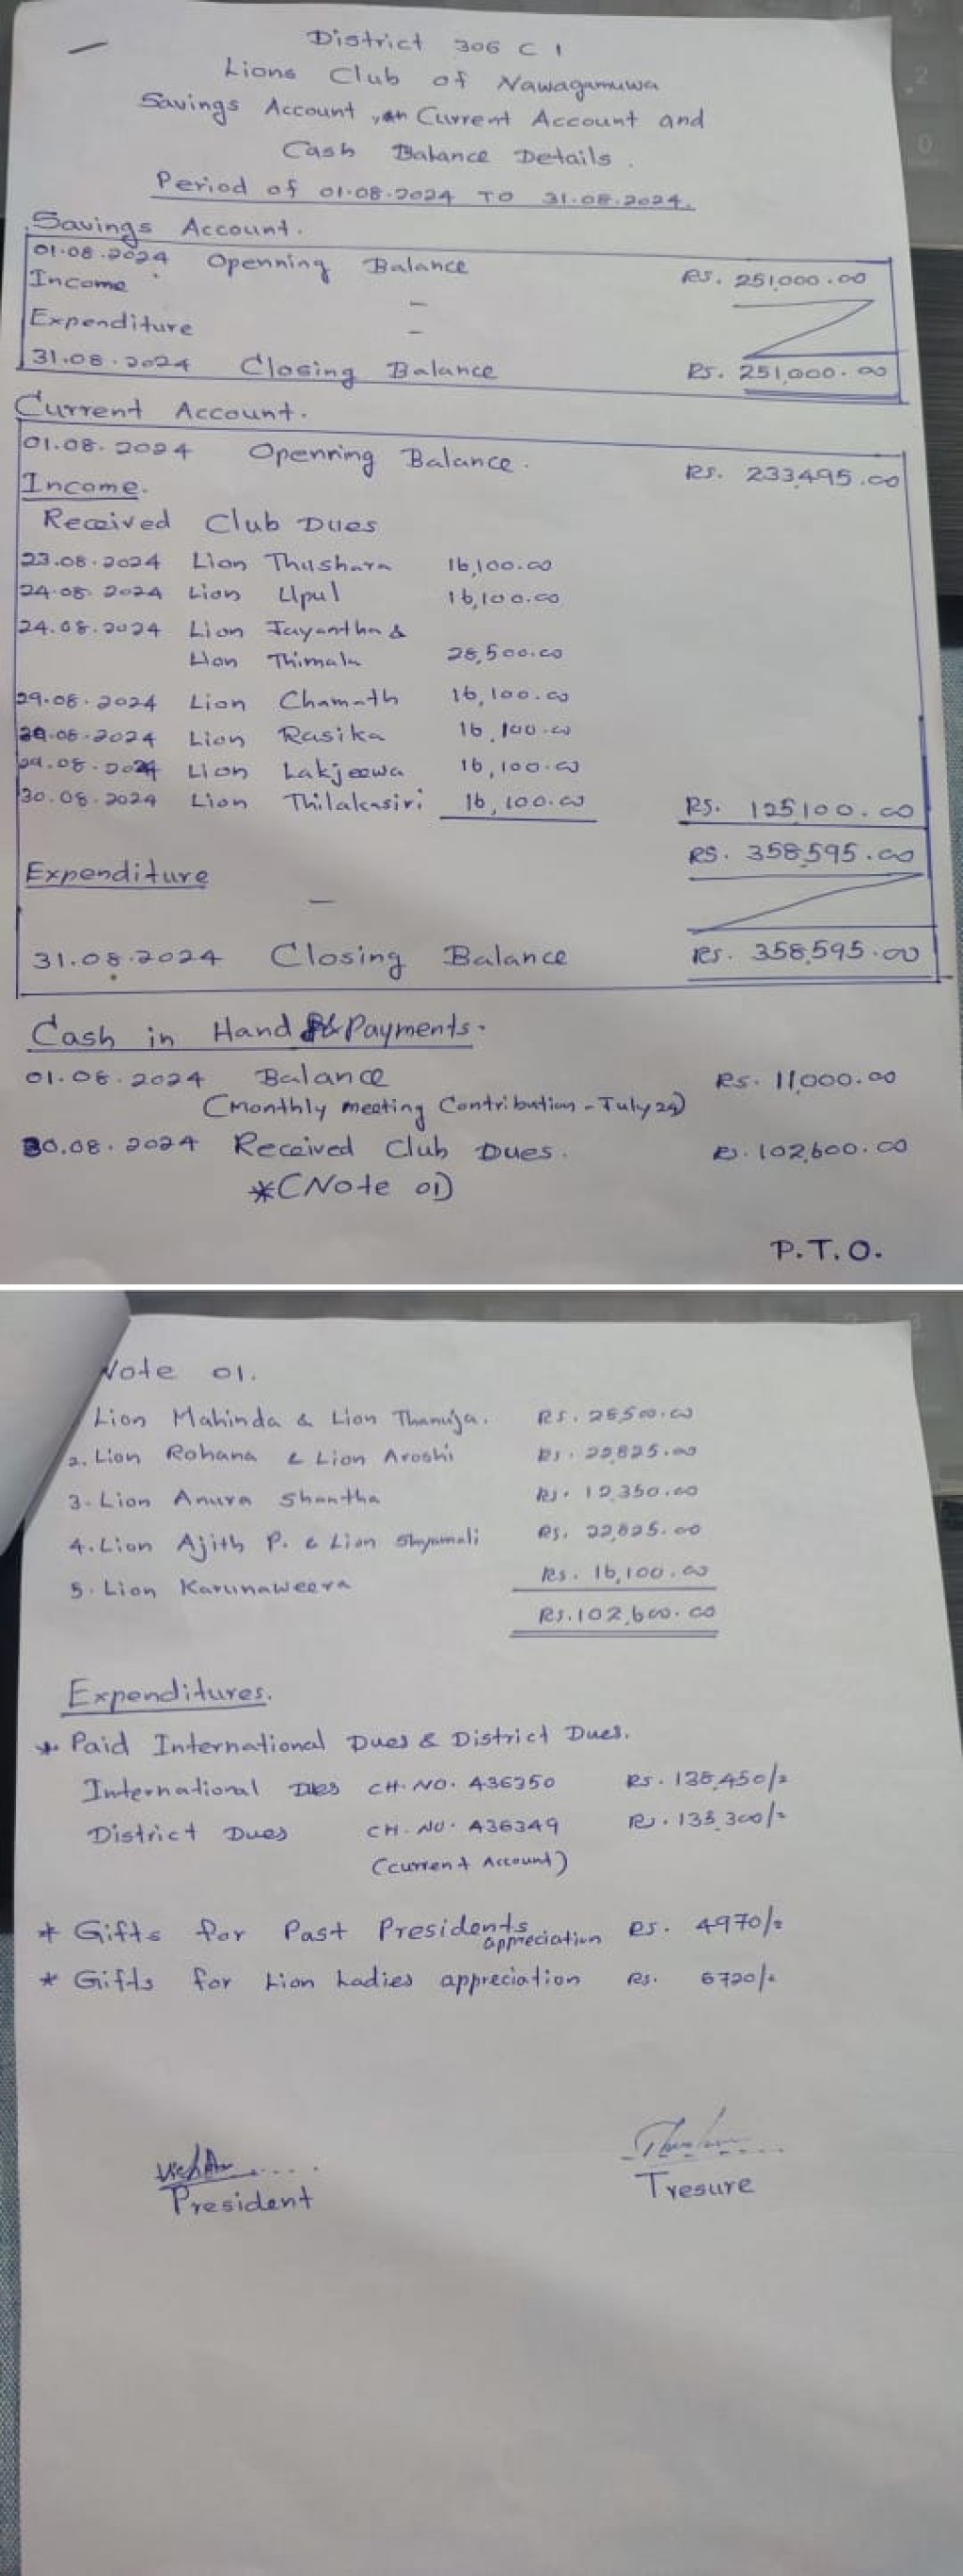 District 306 C 1
Lions Club of Nawagamuwa
Savings Account, Current Account and
Cash Balance Details.
Period of 01.08.2024 TO 31.08.2024.
Savings Account.
01.08.2024 Openning Balance Rs. 251,000.00
Income -
Expenditure -
31.08.2024 Closing Balance Rs. 251,000.00
Current Account.
01.08.2024 Openning Balance. Rs. 233,495.00
Income.
Received Club Dues
23.08.2024 Lion Thushara 16,100.00
24.08.2024 Lion Upul 16,100.00
24.08.2024 Lion Jayantha &
Lion Thimala 28,500.00
29.08.2024 Lion Chamath 16,100.00
29.08.2024 Lion Rasika 16,100.00
29.08.2024 Lion Lakjeewa 16,100.00
30.08.2024 Lion Thilakasiri 16,100.00 Rs. 125,100.00
Rs. 358,595.00
Expenditure
-
31.08.2024 Closing Balance Rs. 358,595.00
Cash in Hand & Payments.
01.08.2024 Balance Rs. 11,000.00
(Monthly meeting Contribution - July 24)
30.08.2024 Received Club Dues. Rs. 102,600.00
*(Note 01)
P.T.O.
Note 01.
Lion Mahinda & Lion Thanuja. Rs. 28,500.00
2. Lion Rohana & Lion Aroshi Rs. 22,825.00
3. Lion Anura Shantha Rs. 12,350.00
4. Lion Ajith P. & Lion Shyamali Rs. 22,825.00
5. Lion Karunaweera Rs. 16,100.00
Rs. 102,600.00
Expenditures.
* Paid International Dues & District Dues.
International Dues CH. NO. 436350 Rs. 138,450/=
District Dues CH. NO. 436349 Rs. 133,300/=
(current Account)
* Gifts for Past Presidents appreciation Rs. 4970/=
* Gifts for Lion Ladies appreciation Rs. 6720/=
President
Tresure